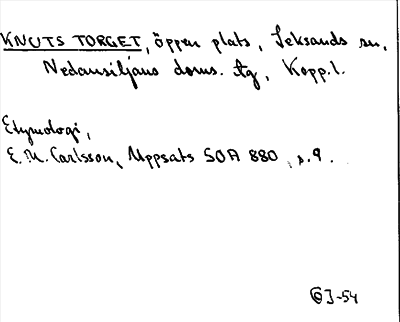 KNUTS TORGET, öppen plats, Leksands sn,
Nedansiljans doms. tg, Kopp.l.
Etymologi,
E. M. Carlsson, Uppsats SOA 880, s. 9.
GJ-54